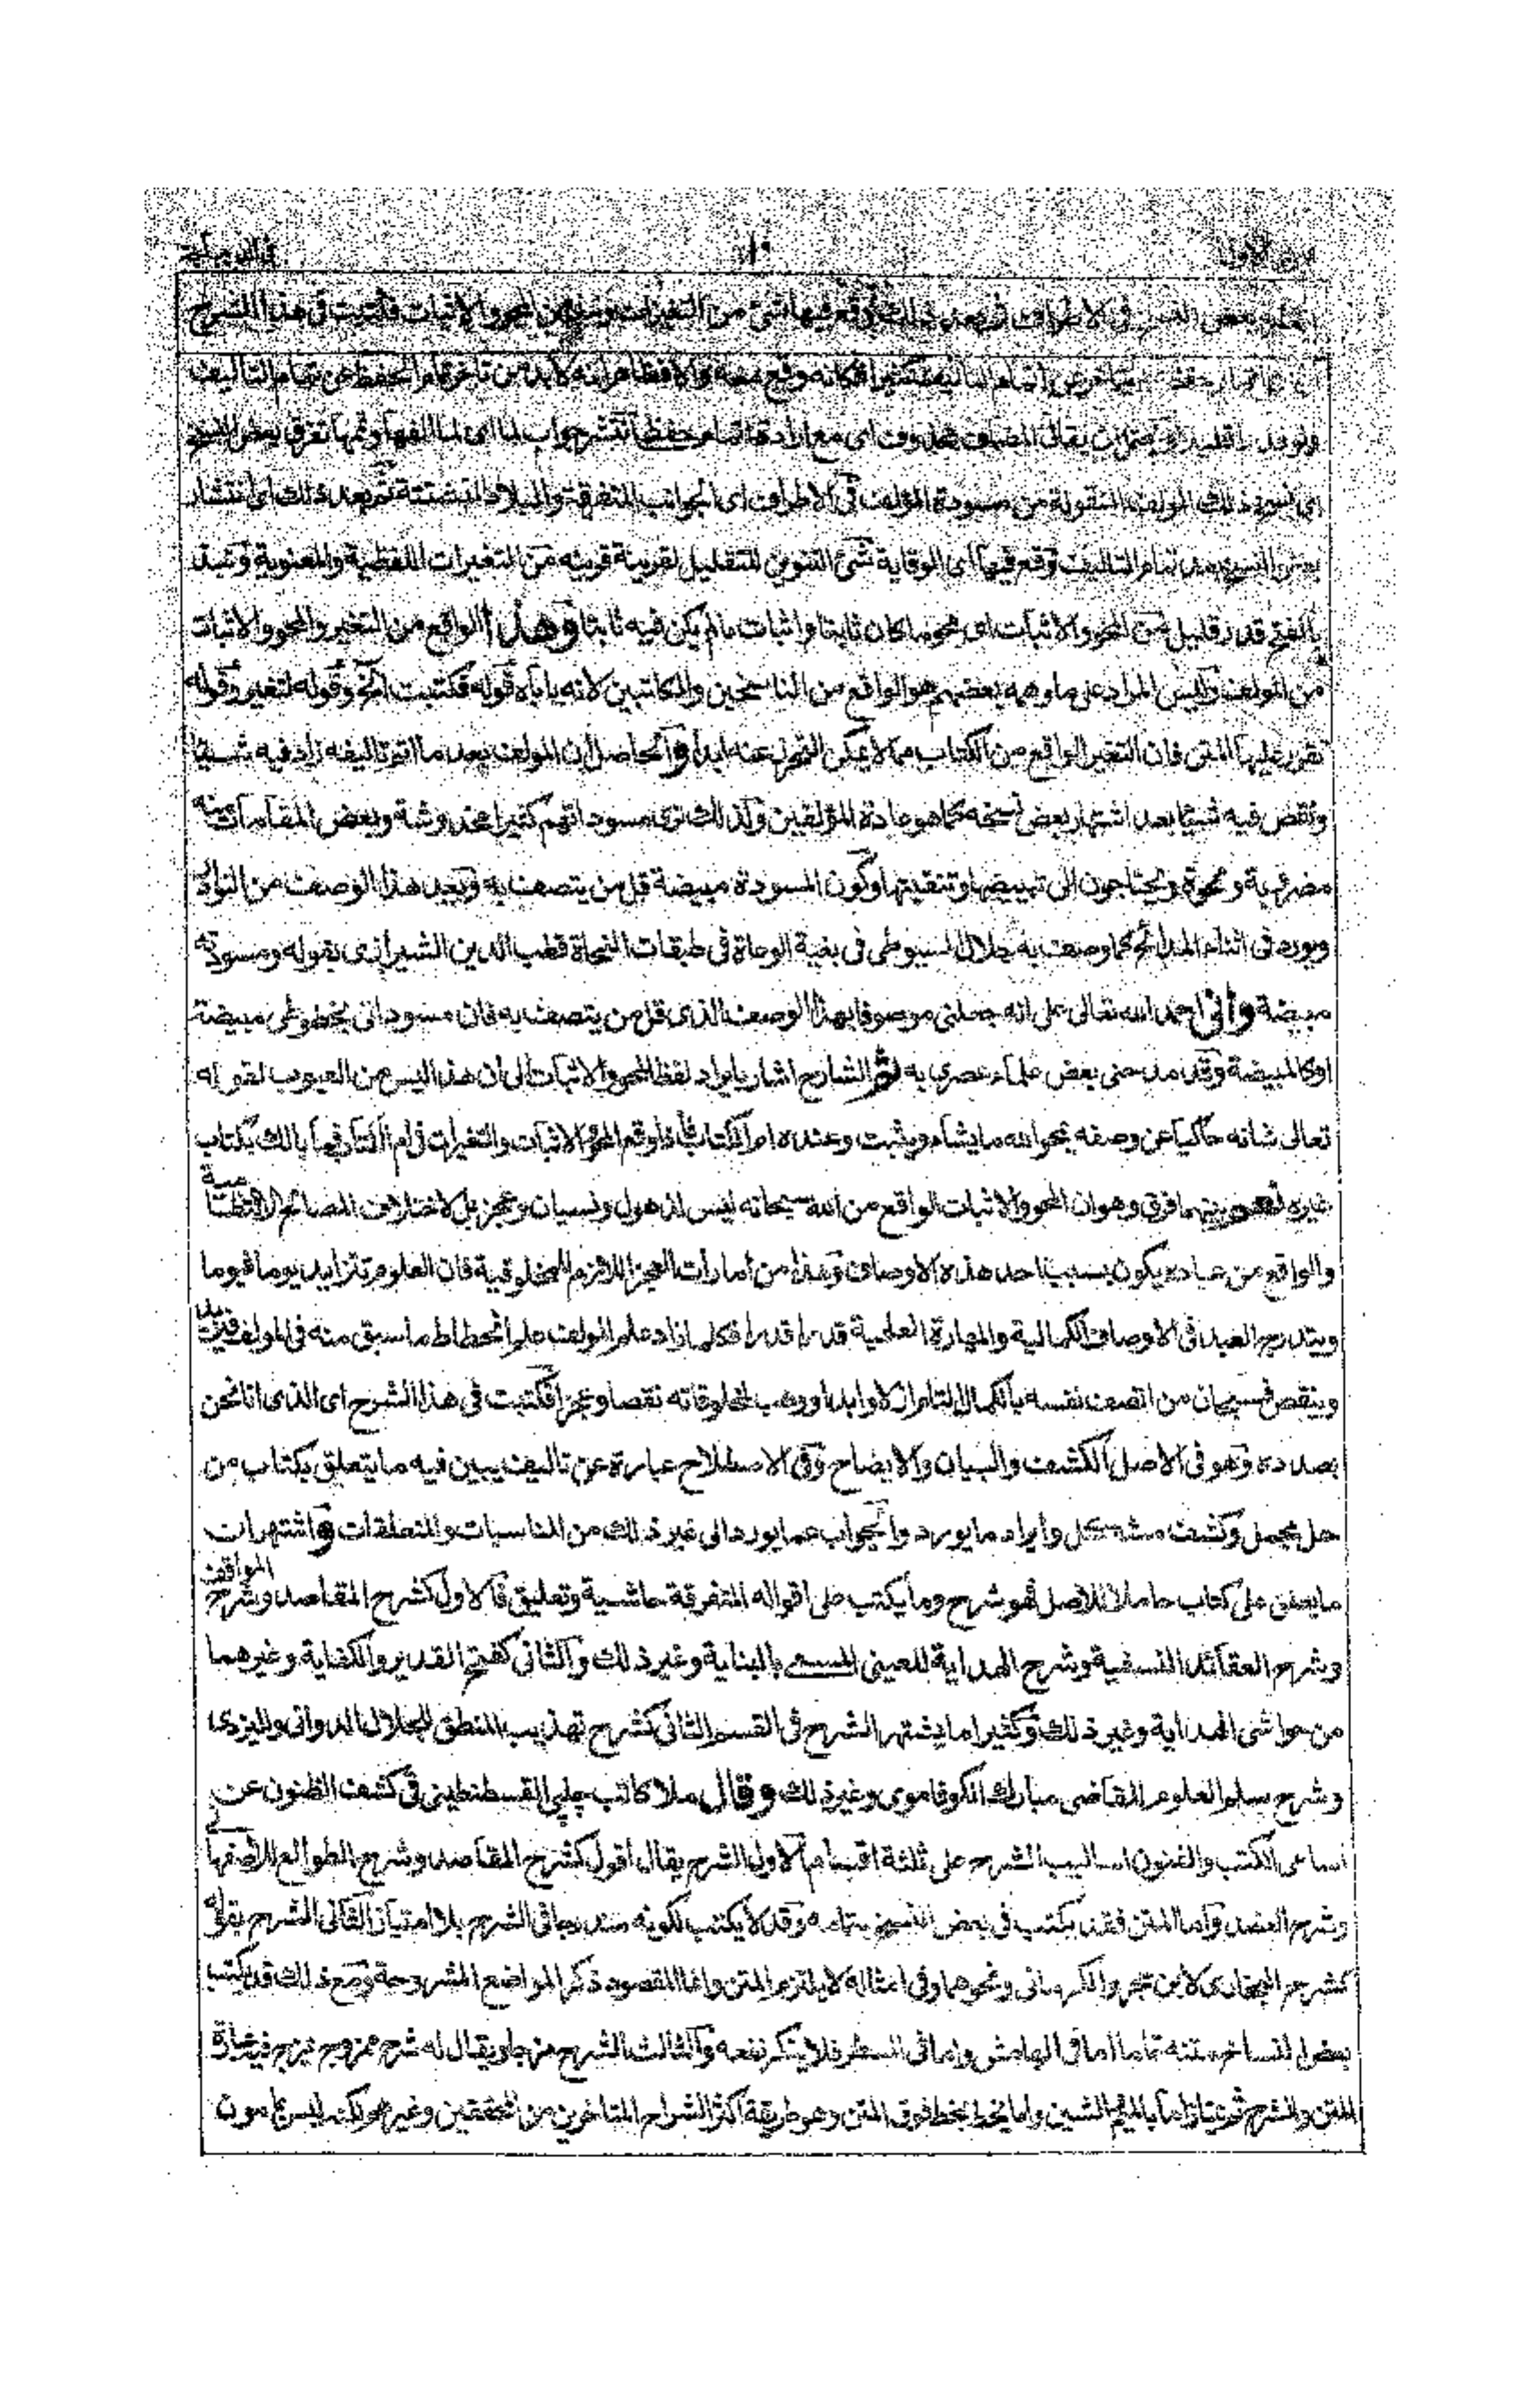 ١٠
بعض النسخ في الاطراف ثم بعد ذلك وقع فيها شئ من التغيرات ونبذ من المحو والاثبات فكتبت في هذا الشرح
فكانه موقع معه والا فظاهر انه لا بد من تاخر تمام الحفظ عن تمام التاليف
ان يقال المضاف محذوف اى مع ارادة اتمام حفظها انتشر جواب لما اى لما الفها وتفرق بعض النسخ
المنقولة من مسودة المؤلف في الاطراف اى الجوانب المتفرقة والبلاد المتشتتة ثم بعد ذلك اى انتشار
بعض النسخ بعد تمام التاليف وقع فيها اى الوقاية شئ التنوين للتقليل لقرينة قرينه من التغيرات اللفظية والمعنوية ونبذ
بالفتح قدر قليل من المحو والاثبات اى محو ما كان ثابتا واثبات ما لم يكن فيه ثابتا وهذا الواقع من التغير والمحو والاثبات
من المؤلف وليس المراد على ما وهمه بعضهم هو الواقع من الناسخين والكاتبين لانه ياباه قوله فكتبت الخ وقوله لتغير وقوله
تقرر عليها المتن فان التغير الواقع من الكتاب مما لا يمكن التحرز عنه ابدا والحاصل ان المؤلف بعد ما اتم تاليفه زاد فيه شيئا
ونقص فيه شيئا بعد اشتهار بعض نسخه كما هو عادة المؤلفين ولذلك ترى مسوداتهم كثيرا مخدوشة وبعض المقامات منه
مضروبة ومحوة ويحتاجون الى تبييضها وتنقيتها وكون المسودة مبيضة قل من يتصف به ويعد هذا الوصف من النوادر
ويورد في اثناء المدائح كما وصف به جلال السيوطى في بغية الوعاة في طبقات النحاة قطب الدين الشيرازى بقوله ومسودته
مبيضة وانى احمد الله تعالى على انه جعلنى موصوفا بهذا الوصف الذى قل من يتصف به فان مسوداتى بخطوطى مبيضة
او كالمبيضة وقد مدحنى بعض علماء عصرى به ثم الشارح اشار بايراد لفظ المحو والاثبات الى ان هذا ليس من العيوب لقوله
تعالى شانه حاكيا عن وصفه يمحو الله ما يشاء ويثبت وعنده ام الكتاب فاذا وقع المحو والاثبات والتغيرات في ام الكتاب فما بالك بكتاب
غيره نعم بينهما فرق وهو ان المحو والاثبات الواقع من الله سبحانه ليس لذهول ونسيان وعجز بل لاختلاف المصالح الانتظامية
والواقع من عباده يكون بسبب احد هذه الاوصاف وهذا من امارات العجز اللازم للمخلوقية فان العلوم تتزايد يوما فيوما
ويتدرج العبد في الاوصاف الكمالية والمهارة العلمية قدرا قدرا فكلما زاد علم المؤلف علم انحطاط ما سبق منه في المؤلف فيزيد
وينقص فسبحان من اتصف نفسه بالكمال التام ازلا وابدا ووهب لمخلوقاته نقصا وعجزا فكتبت في هذا الشرح اى الذى انا نحن
بصدده وهو في الاصل الكشف والبيان والايضاح وفي الاصطلاح عبارة عن تاليف يبين فيه ما يتعلق بكتاب من
حل مجمل وكشف مشكل وايراد ما يورد والجواب عما يورد الى غير ذلك من المناسبات والمتعلقات واشتهر ان
ما يعلق على كتاب حاملا للاصل فهو شرح وما يكتب على اقواله المتفرقة حاشية وتعليق فالاول كشرح المقاصد وشرح المواقف
وشرح العقائد النسفية وشرح الهداية للعينى المسمى بالبناية وغير ذلك والثانى كفتح القدير والكفاية وغيرهما
من حواشى الهداية وغير ذلك وكثيرا ما يشتهر الشرح في القسم الثانى كشرح تهذيب المنطق للجلال الدوانى واليزدى
وشرح سلم العلوم للقاضى مبارك الكوفاموى وغير ذلك وقال ملا كاتب چلپى القسطنطينى في كشف الظنون عن
اسامى الكتب والفنون اساليب الشرح على ثلثة اقسام الاول الشرح يقال اقول كشرح المقاصد وشرح الطوالع للاصفهانى
وشرح العضد واما المتن فقد يكتب في بعض النسخ بتمامه وقد لا يكتب لكونه مندرجا في الشرح بلا امتياز الثانى الشرح بقوله
كشرح البخارى لابن حجر والكرمانى ونحوهما وفي امثاله لا يلتزم المتن وانما المقصود ذكر المواضع المشروحة ومع ذلك قد يكتب
بعض النساخ متنه تماما اما في الهامش واما في السطر فلا ينكر نفعه والثالث الشرح مزجا ويقال له شرح ممزوج يمزج فيه عبارة
المتن والشرح ثم يمتاز اما بالميم والشين واما بخط يخط فوق المتن وهو طريقة اكثر الشراح المتاخرين من المحققين وغيرهم لكنه ليس بمامون